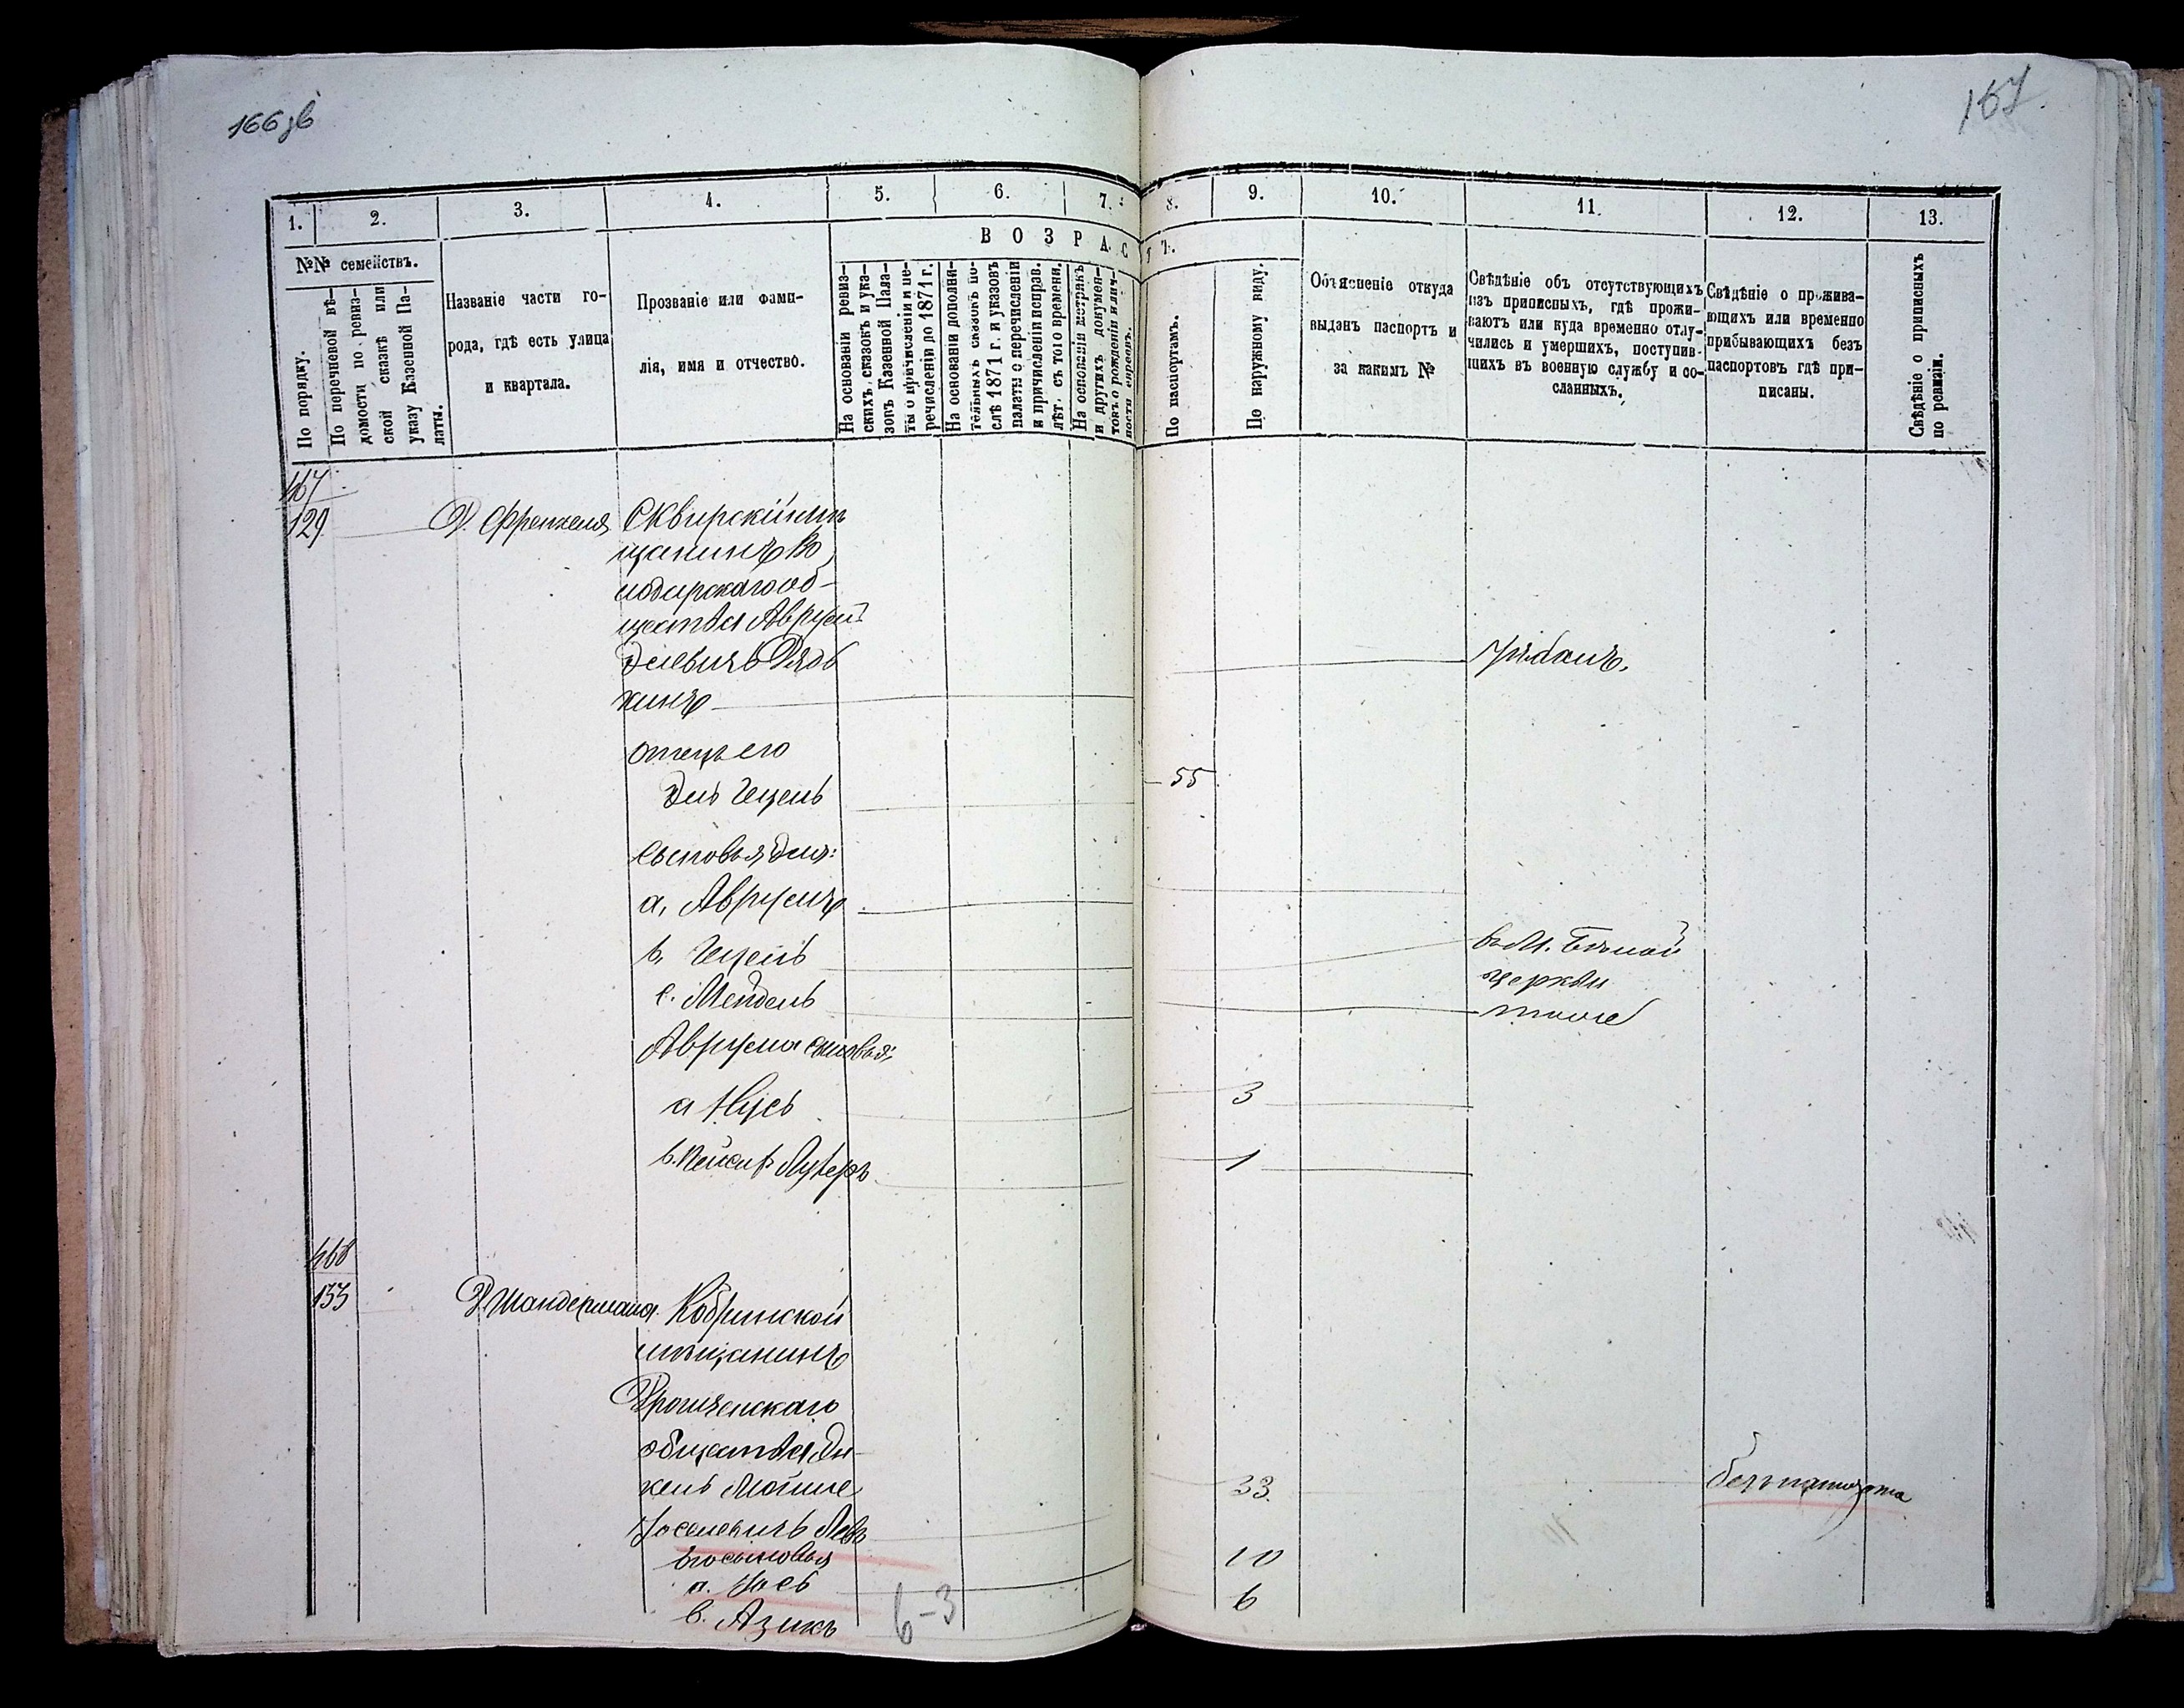 166 об
167.
1.
2.
3.
4.
5.
6.
7.
8.
9.
10.
11.
12.
13.
№№ семействъ.
По порядку.
По перечневой вѣ-
домости по ревиз-
ской сказкѣ или
указу Казенной Па-
латы.
Названіе части го-
рода, гдѣ есть улица
и квартала.
Прозваніе или фами-
лія, имя и отчество.
ВОЗРАСТЪ.
На основаніи ревиз-
скихъ сказокъ и ука-
зовъ Казенной Пала-
ты о причисленіи и пе-
речисленіи до 1871 г.
На основаніи дополни-
тельныхъ сказокъ по-
слѣ 1871 г. и указовъ
палаты о перечисленіи
и причисленіи исправ.
лѣт. съ того времени.
На основаніи метрикъ
и другихъ докумен-
товъ о рожденіи и лич-
ности евреевъ.
По паспортамъ.
По наружному виду.
Объясненіе откуда
выданъ паспортъ и
за какимъ №
Свѣдѣніе объ отсутствующихъ
изъ приписныхъ, гдѣ прожи-
ваютъ или куда временно отлу-
чились и умершихъ, поступив-
шихъ въ военную службу и со-
сланныхъ.
Свѣдѣніе о прожива-
ющихъ или временно
прибывающихъ безъ
паспортовъ гдѣ при-
писаны.
Свѣдѣніе о приписныхъ
по ревизіи.
467
129
Д. Френкеля
Сквирскій мѣ
щанинъ Во
лодарскаго об-
щества Аврумъ
Элевичъ
отецъ его
Эль Гецель
55
Сыновья Эля:
а, Аврумъ
в, Гецель
въ М. Бѣлой
Церкви
с. Мендель
тоже
Аврума сыновья:
а Нусь 3
в. 1
468
133
Д. Шандермана
Кобринской
мѣщанинъ
общества
кель Мойше 33. безъ паспорта
Іоселевичъ
его сыновья
а. Іось 10
в. Азикъ 6
6-3